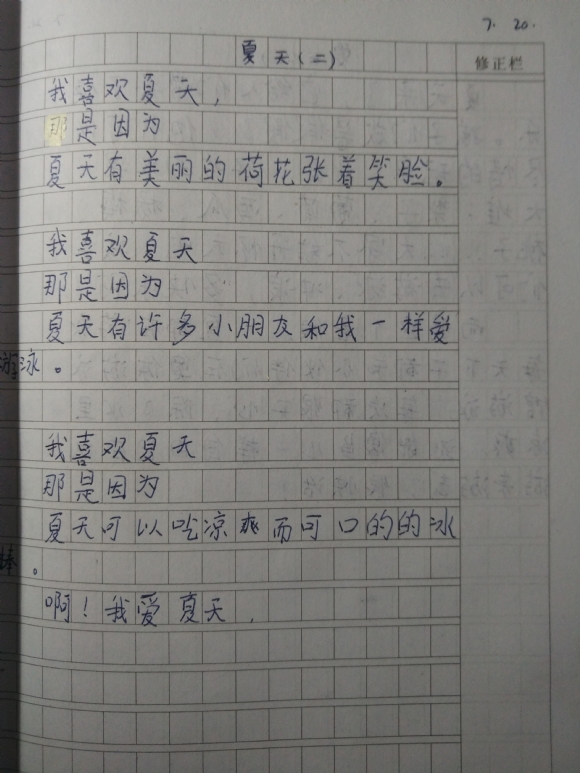 7. 20.
夏天(二)
修正栏
我喜欢夏天,
那是因为
夏天有美丽的荷花张着笑脸。
我喜欢夏天
那是因为
夏天有许多小朋友和我一样爱
游泳。
我喜欢夏天
那是因为
夏天可以吃凉爽而可口的的冰
棒。
啊!我爱夏天,